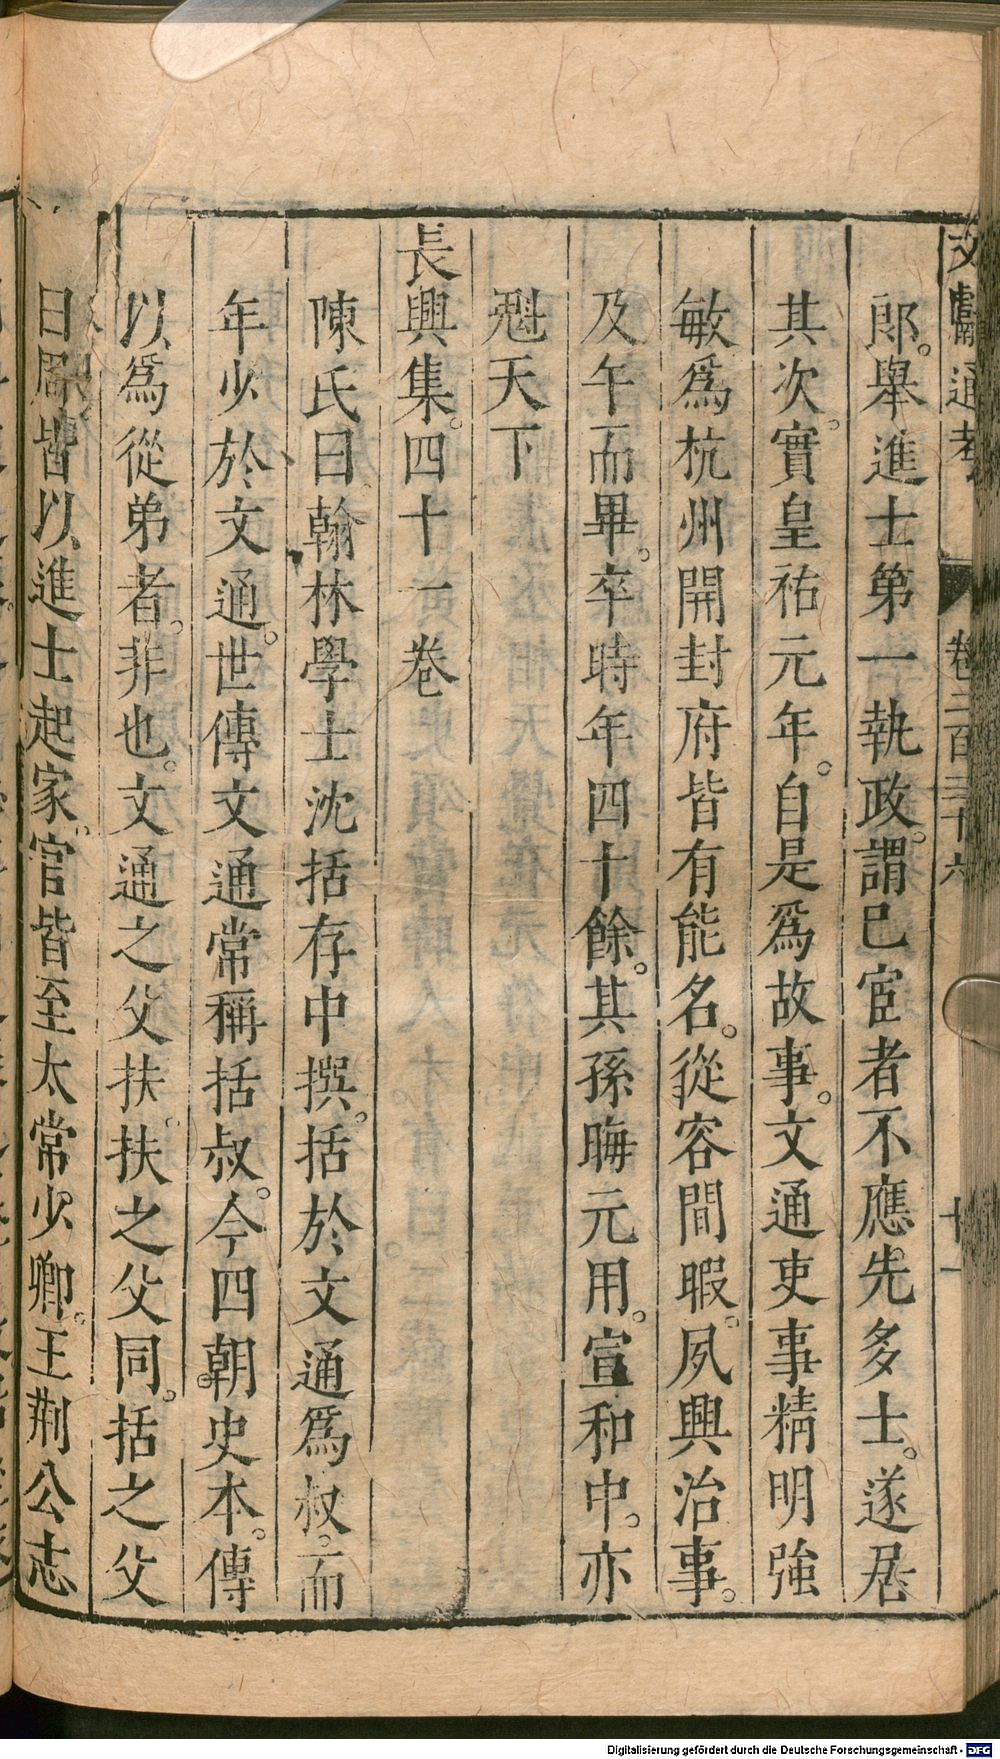 文獻通考 卷二百三十六 十一
郎。舉進士第一執政。謂已宦者不應先多士。遂居
其次。實皇祐元年。自是爲故事。文通吏事精明強
敏爲杭州開封府皆有能名。從容間暇。夙興治事。
及午而畢。卒時年四十餘。其孫晦元用。宣和中。亦
魁天下
長興集。四十一卷
陳氏曰翰林學士沈括存中撰。括於文通爲叔。而
年少於文通。世傳文通常稱括叔。今四朝史本。傳
以爲從弟者。非也。文通之父扶。扶之父同。括之父
曰周皆以進士起家。官皆至太常少卿。王荆公志
Digitalisierung gefördert durch die Deutsche Forschungsgemeinschaft - DFG